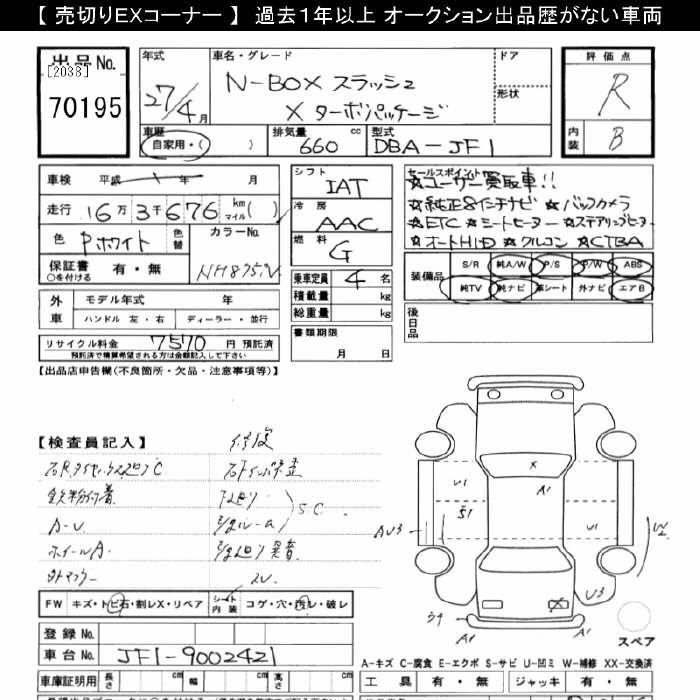 【 売切りEXコーナー 】 過去1年以上 オークション出品歴がない車両
出品No. [2038] 70195
年式 27/4月
車名・グレード N-BOX スラッシュ
X ターボパッケージ
ドア
形状
評価点 R
内装 B
車歴 自家用・( )
排気量 660 cc
型式 DBA-JF1
車検 平成 年 月
走行 16万3千676 km マイル( )
色 Pホワイト 色替
カラーNo. NH875P
保証書 有・無
○を付ける
シフト IAT
冷房 AAC
燃料 G
乗車定員 4 名
積載量 kg
総重量 kg
書類期限
月 日
セールスポイント
☆ユーザー買取車!!
☆純正8インチナビ ☆バックカメラ
☆ETC ☆シートヒーター ☆ステアリングヒーター
☆オートHID ☆クルコン ☆CTBA
装備品 S/R 純A/W P/S P/W ABS
純TV 純ナビ 革シート 外ナビ エアB
後日品
外車 モデル年式 年
ハンドル 左・右 ディーラー・並行
リサイクル料金 7570 円 預託済
預託済で精算希望される方は金額記入して下さい
【出品店申告欄(不良箇所・欠品・注意事項等)】
【検査員記入】
修復
鉄粉付着
下廻り
S C
A-U
ホイールA
外マフラー
FW キズ・トビ石・割レX・リペア シート内装 コゲ・穴・汚レ・破レ
登録No.
車台No. JF1-9002421
車庫証明用 長さ cm 幅 cm 高さ cm
X
U1
A1
S1
AU3
U1
U3
X
A1
A1
スペア
A-キズ C-腐食 E-エクボ S-サビ U-凹ミ W-補修 XX-交換済
工具 有・無 ジャッキ 有・無